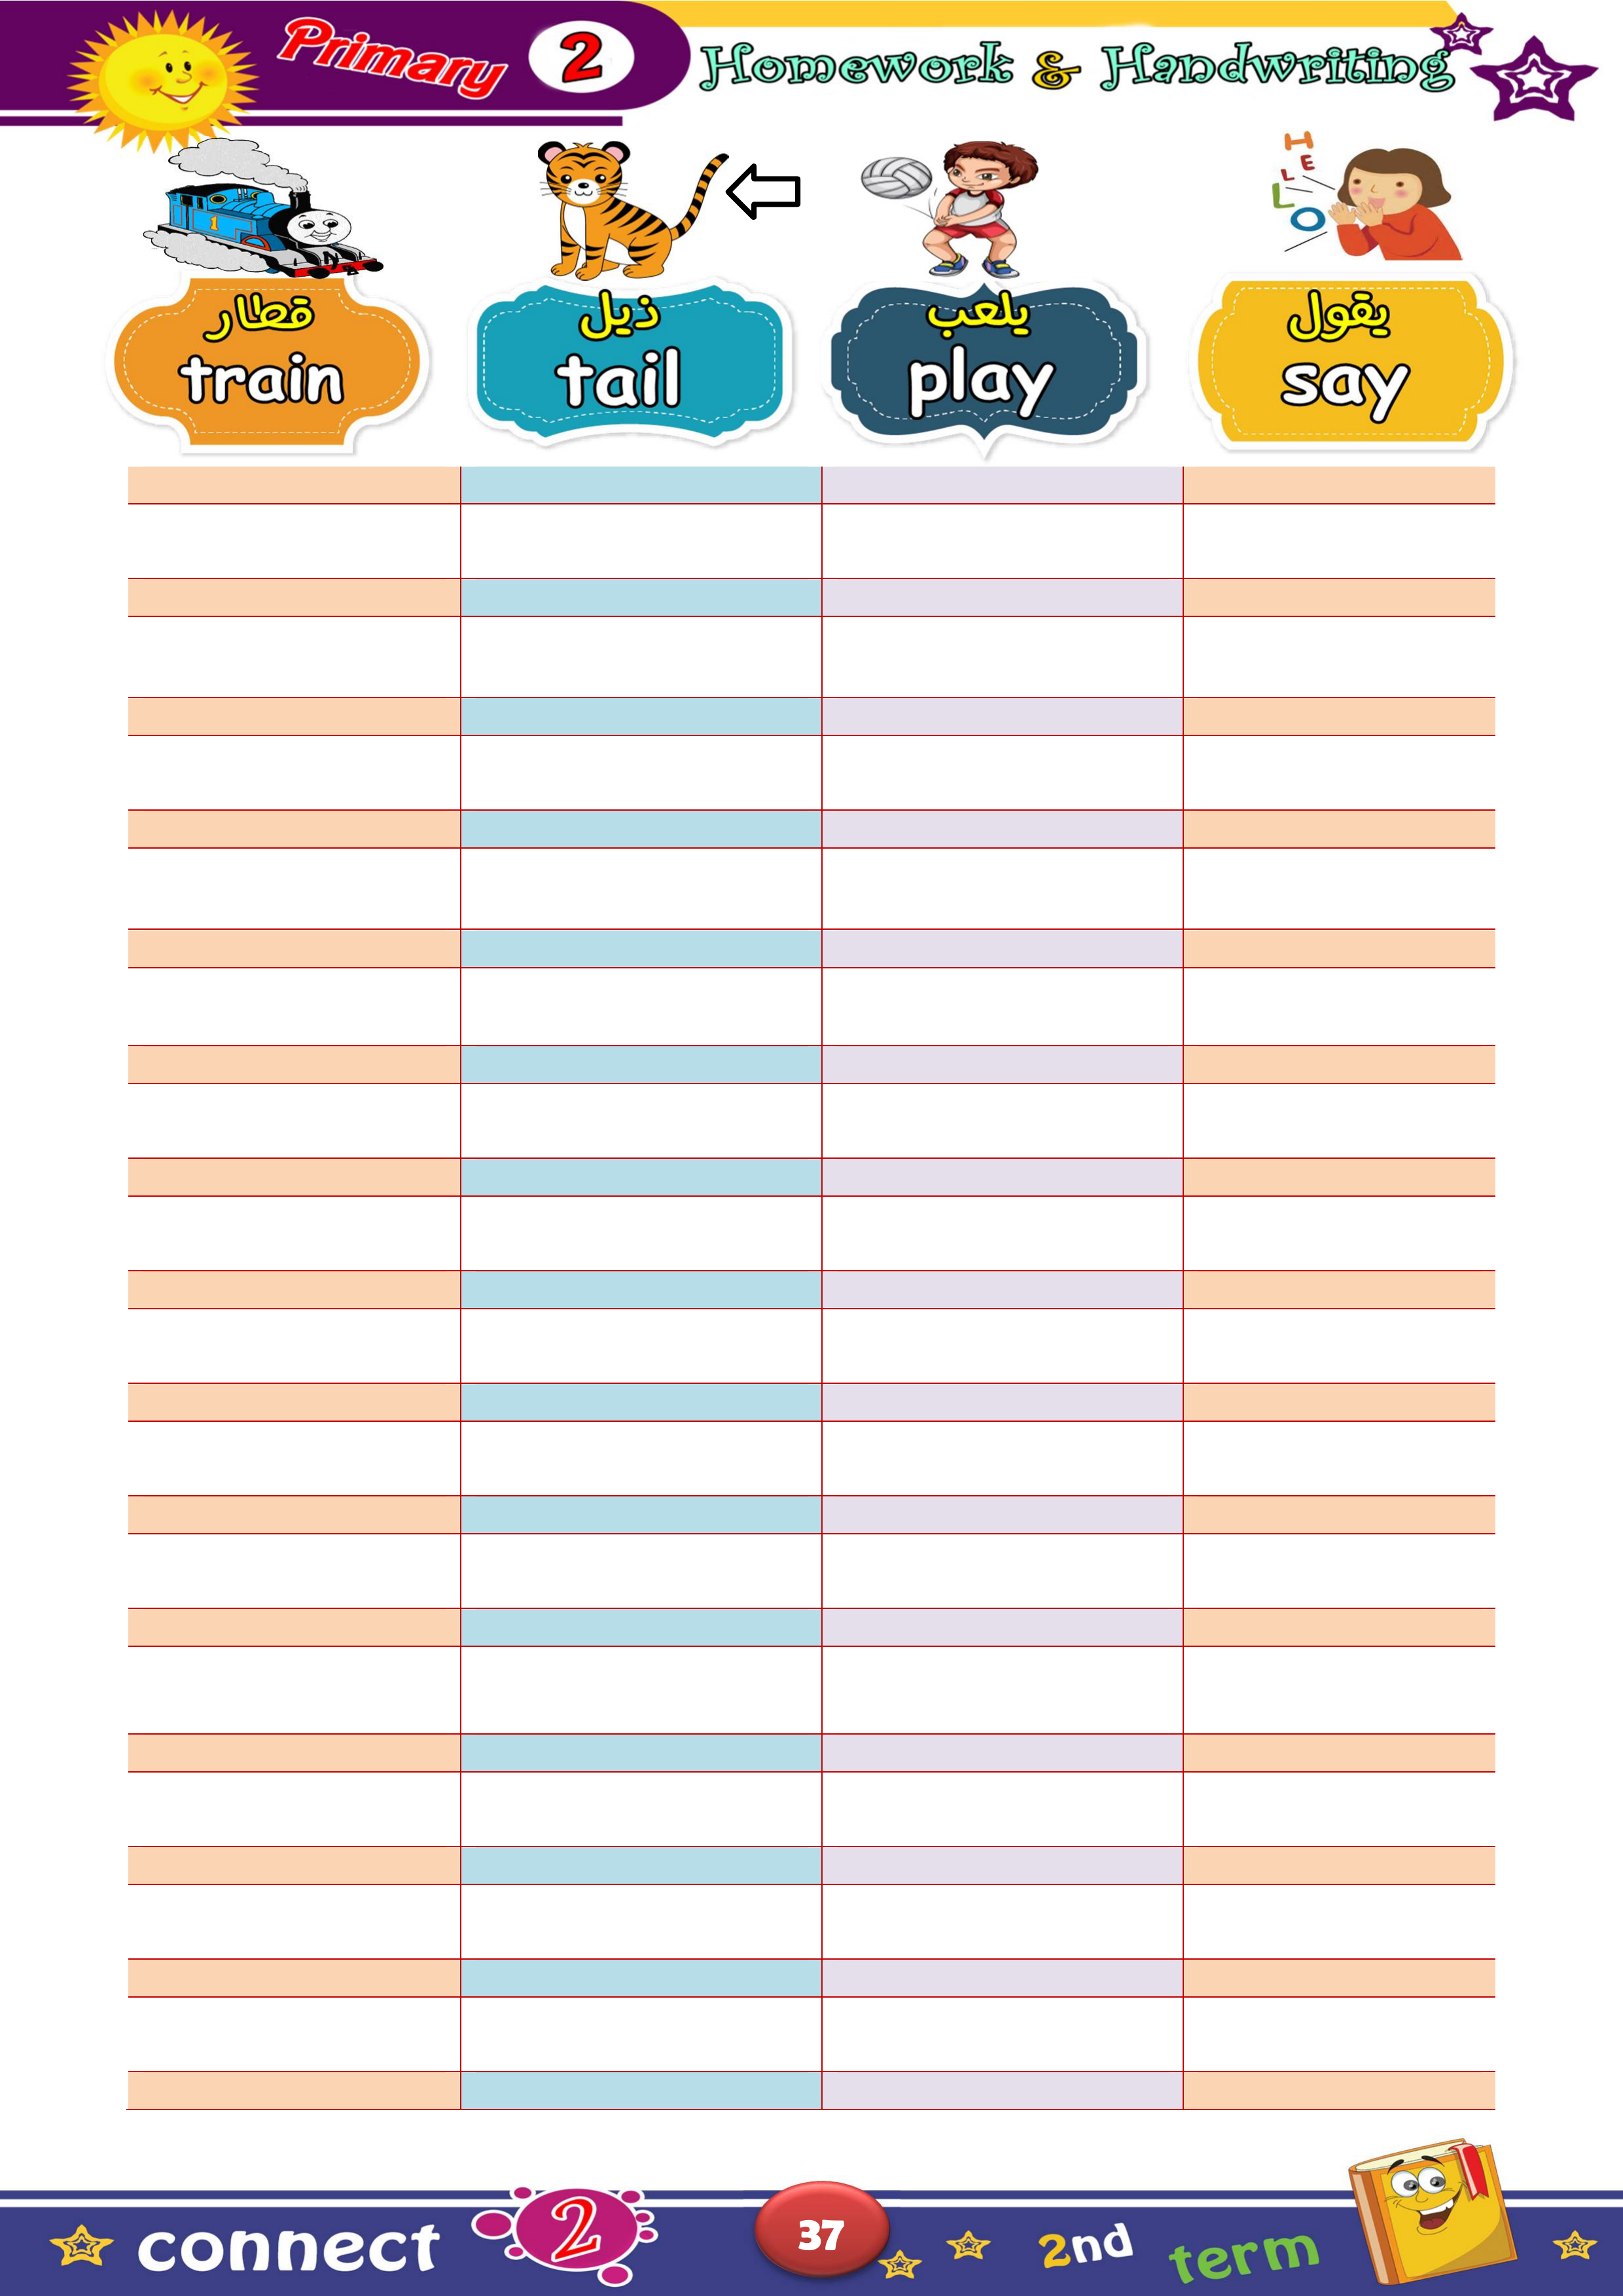 Primary 2 Homework & Handwriting
1
H
E
L
L
O
قطار
train
ذيل
tail
يلعب
play
يقول
say
connect 2 37 2nd term